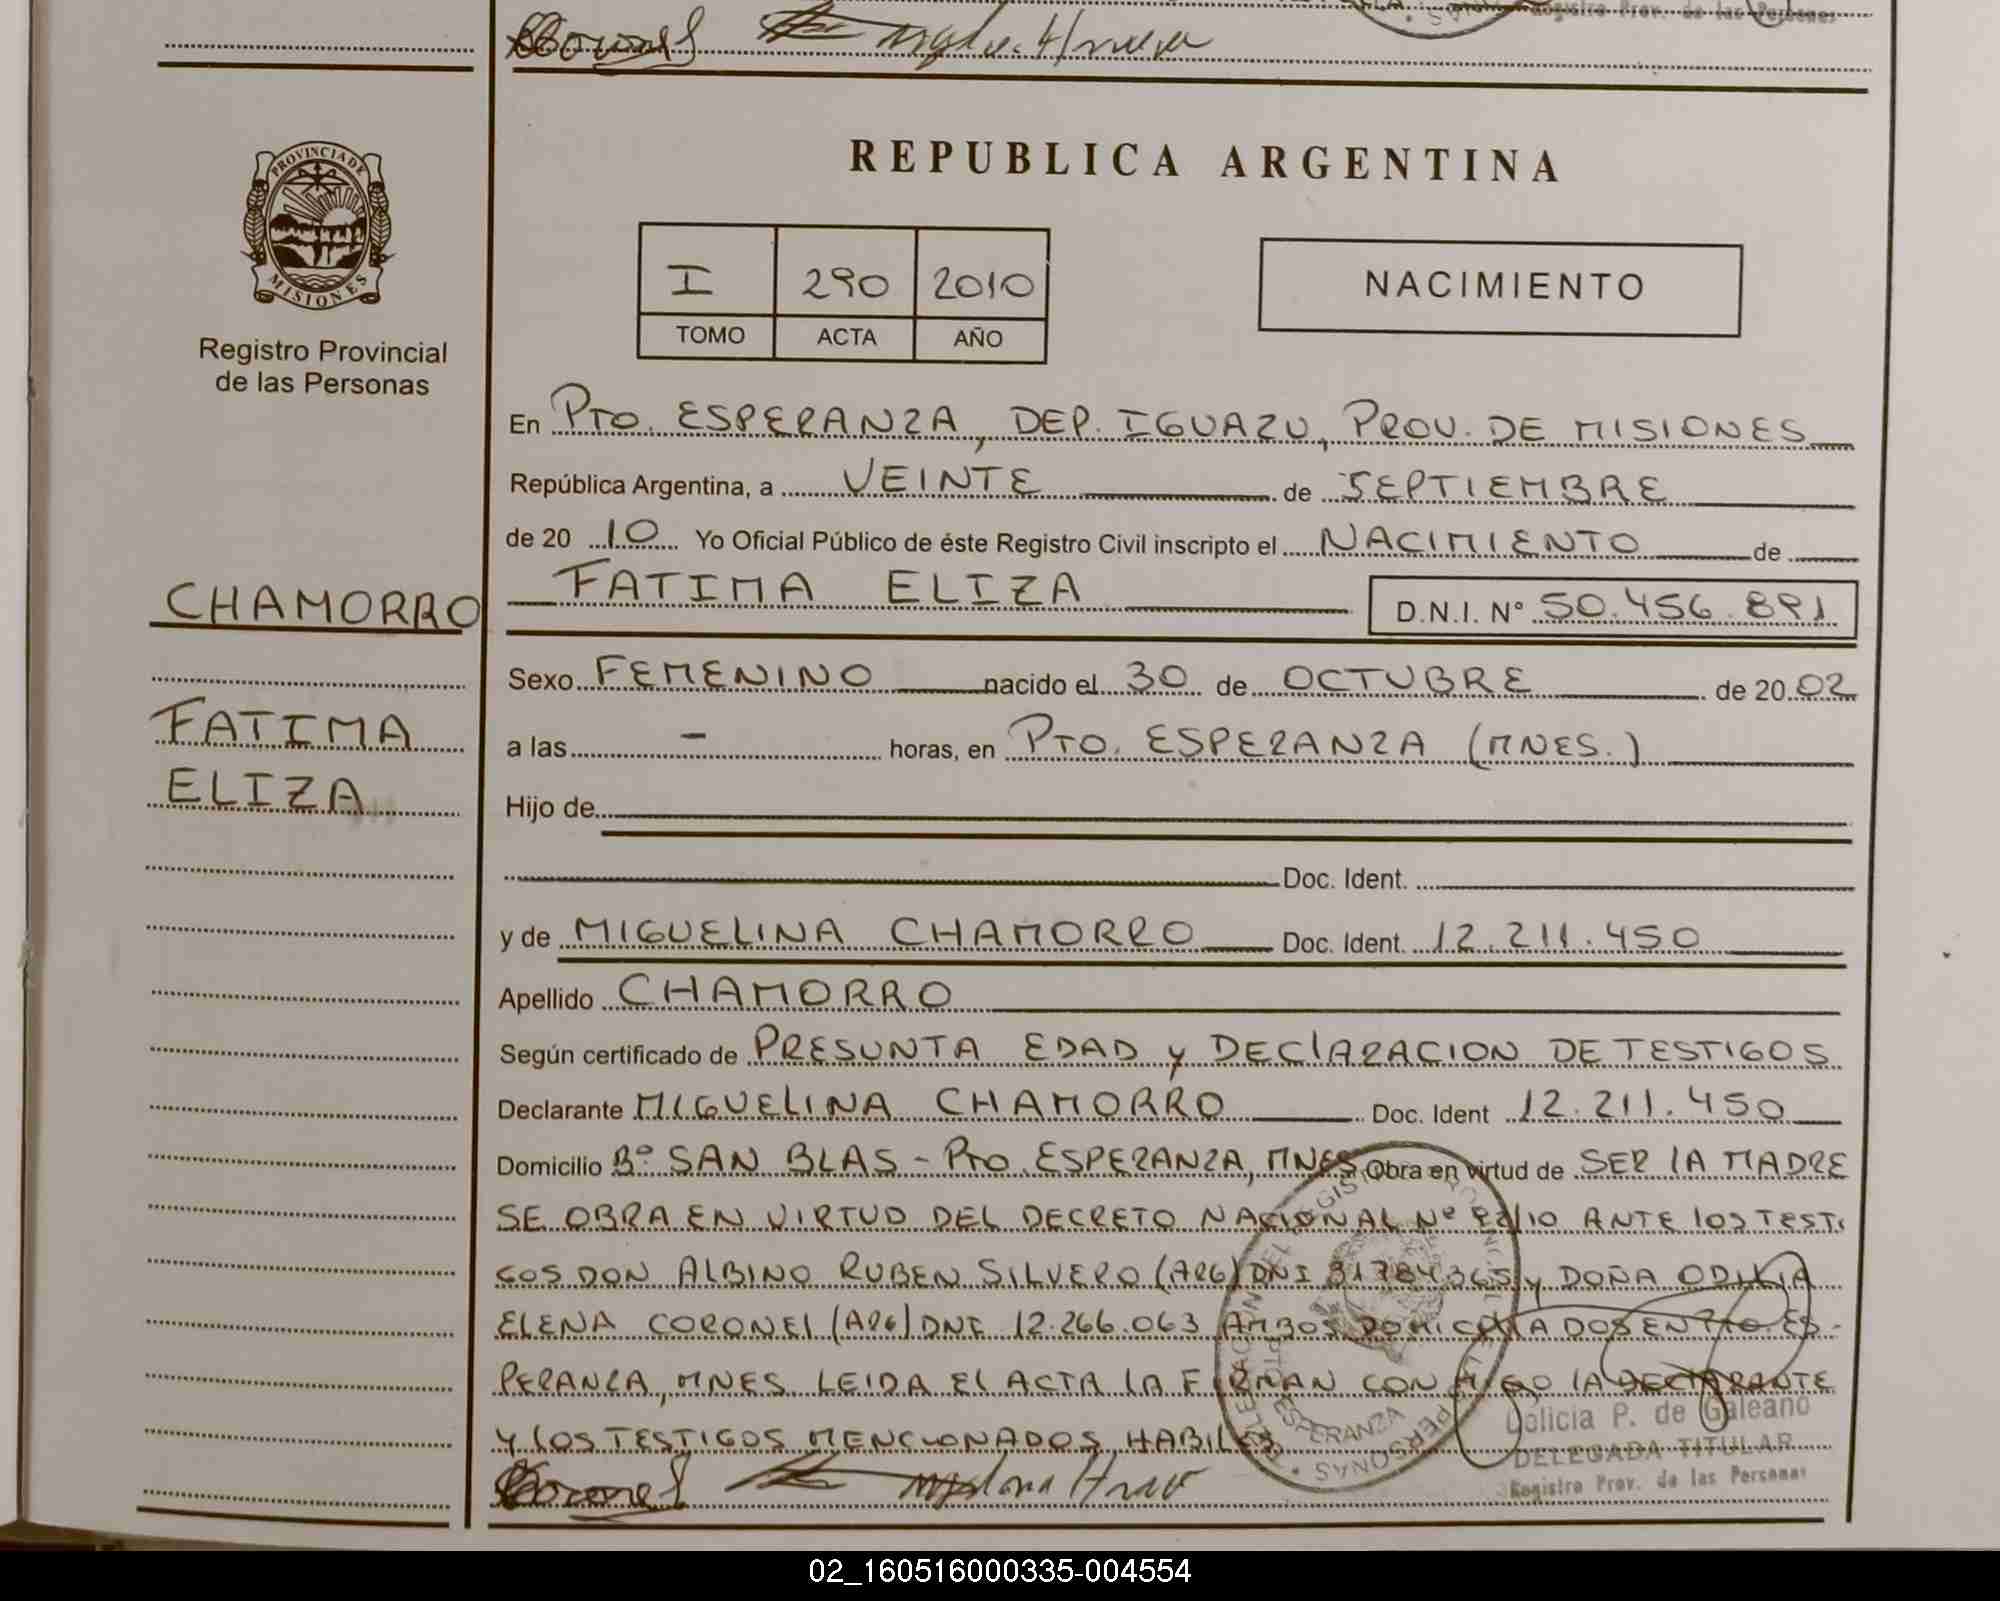 Registro Prov. de las Personas
Coronel
REPUBLICA ARGENTINA
PROVINCIA DE
MISIONES
Registro Provincial
de las Personas
I 290 2010
TOMO ACTA AÑO
NACIMIENTO
En PTO. ESPERANZA, DEP. IGUAZU, PROV. DE MISIONES
República Argentina, a VEINTE de SEPTIEMBRE
de 20 10 Yo Oficial Público de éste Registro Civil inscripto el NACIMIENTO de
FATIMA ELIZA D.N.I. Nº 50.456.891
CHAMORRO
FATIMA
ELIZA
Sexo FEMENINO nacido el 30 de OCTUBRE de 20 02
a las - horas, en PTO. ESPERANZA (MNES.)
Hijo de
Doc. Ident.
y de MIGUELINA CHAMORRO Doc. Ident. 12.211.450
Apellido CHAMORRO
Según certificado de PRESUNTA EDAD y DECLARACION DE TESTIGOS
Declarante MIGUELINA CHAMORRO Doc. Ident 12.211.450
Domicilio Bº SAN BLAS - PTO ESPERANZA, MNES Obra en virtud de SER LA MADRE
SE OBRA EN VIRTUD DEL DECRETO NACIONAL Nº 92/10 ANTE LOS TESTI
GOS DON ALBINO RUBEN SILVERO (ARG) DNI 31784365 y DOÑA ODILIA
ELENA CORONEL (ARG) DNI 12.266.063 AMBOS DOMICILIADOS EN PTO. ES-
PERANZA, MNES LEIDA EL ACTA LA FIRMAN CONMIGO LA DECLARANTE
Y LOS TESTIGOS MENCIONADOS, HABILES
Dolicia P. de Galeano
DELEGADA TITULAR
Registro Prov. de las Personas
Coronel
02_160516000335-004554